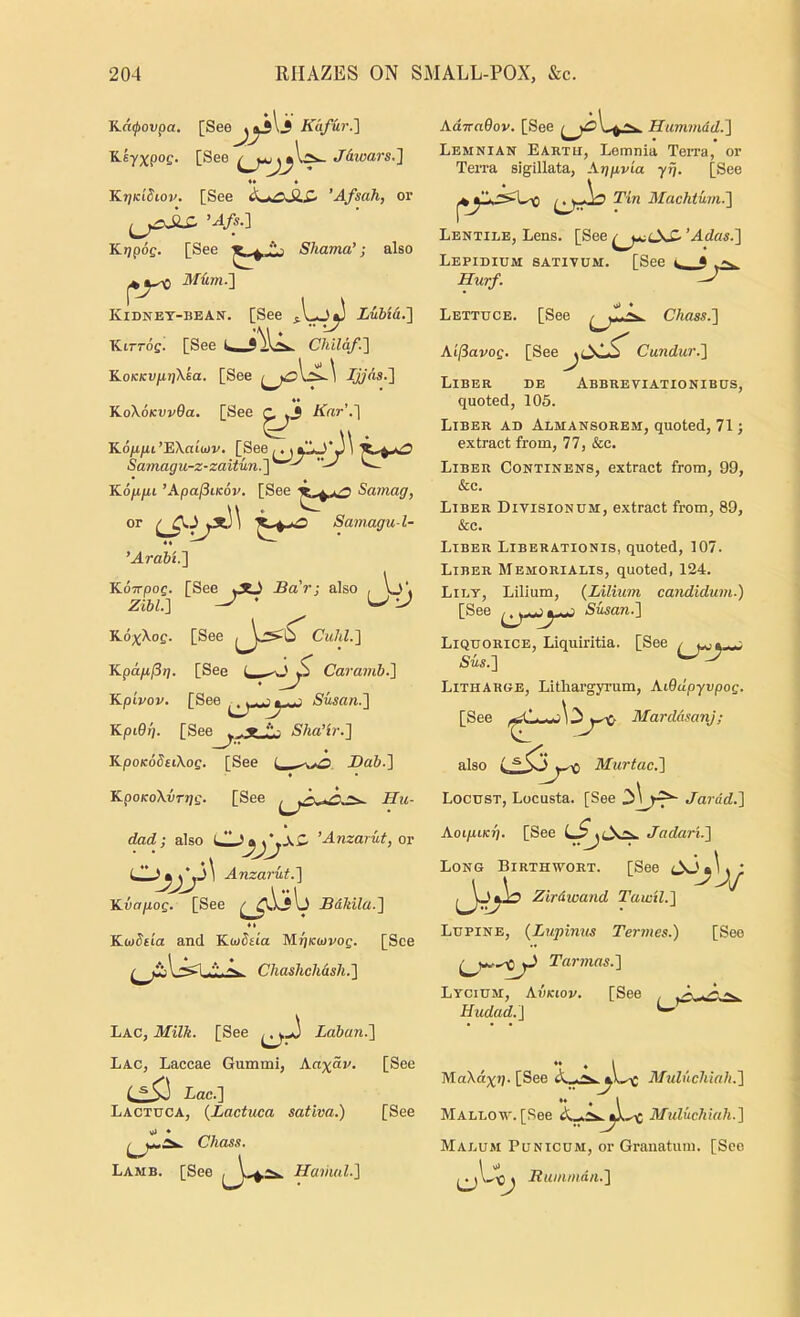 204 RHAZES ON SMALL-POX, &c.
Κάφουρα. [See كافور Káfúr.]
Κέγχρος. [See جاورس Jáwars.]
Κηκίδιον. [See عفصة ’Afsah, or
عفص ’Afs.]
Κηρός. [See شمع Shama’; also
موم Múm.]
KIDNEY-BEAN. [See لوبياء Lúbiá.]
Κιττός. [See خلاف Chiláf.]
Κοκκυμηλέα. [See اجاص Ijjás.]
Κολόκυνθα. [See قرع Kar’.]
Κόμμι Ἐλαιων. [See صمغ الزيتون
Samagu-z-zaitún.]
Κόμμι Ἀραβικόν. [See صمغ Samag,
or صمغ العربي Samagu-l-
’Arabí.]
Κόπρος. [See بعر Ba’r; also زبل
Zibl.]
Κόχλος. [See كحل Cuhl.]
Κράμβη. [See كرنب Caramb.]
Κρίνον. [See سوسن Súsan.]
Κριθή. [See شعير Sha’ír.]
Κροκόδειλος. [See ضب Dab.]
Κροκολύτης. [See حضض Hu-
dad; also عنزروت ’Anzarút, or
انزروت Anzarút.]
Κύαμος. [See باقلى Bákila.]
Κωδεία and Κωδεία Μήκωνος. [See
خشخاش Chashchásh.]
LAC, Milk. [See لبن Laban.]
LAC, Laccae Gummi, Λαχᾶν. [See
لك Lac.]
LACTUCA, (Lactuca sativa.) [See
خس Chass.
LAMB. [See حمل Hamal.]
Λάπαθον. [See حماض Hummád.]
LEMNIAN EARTH, Lemnia Terra, or
Terra sigillata, Λημνία γῆ. [See
طين مختوم Tín Machtúm.]
LENTILE, Lens. [See عدس ’Adas.]
LEPIDIUM SATIVUM. [See حرف
Hurf.
LETTUCE. [See خس Chass.]
Λίβανος. [See كندر Cundur.]
LIBER DE ABBREVIATIONIBUS,
quoted, 105.
LIBER AD ALMANSOREM, quoted, 71;
extract from, 77, &c.
LIBER CONTINENS, extract from, 99,
&c.
LIBER DIVISIONUM, extract from, 89,
&c.
LIBER LIBERATIONIS, quoted, 107.
LIBER MEMORIALIS, quoted, 124.
LILY, Lilium, (Lilium candidum.)
[See سوسن Súsan.]
LIQUORICE, Liquiritia. [See سوس
Sús.]
LITHARGE, Lithargyrum, Λιθάργυρος.
[See مرداسنج Mardásanj;
also مرتك Murtac.]
LOCUST, Locusta. [See جراد Jarád.]
Λοιμική. [See جدري Jadarí.]
LONG BIRTHWORT. [See زراوند
طويل Ziráwand Tawíl.]
LUPINE, (Lupinus Termes.) [See
ترمس Tarmas.]
LYCIUM, Λύκιον. [See حضض
Hudad.]
Μαλάχη. [See ملوخية Mulúchiah.]
MALLOW. [See ملوخية Mulúchiah.]
MALUM PUNICUM, or Granatum. [See
رمان Rummán.]